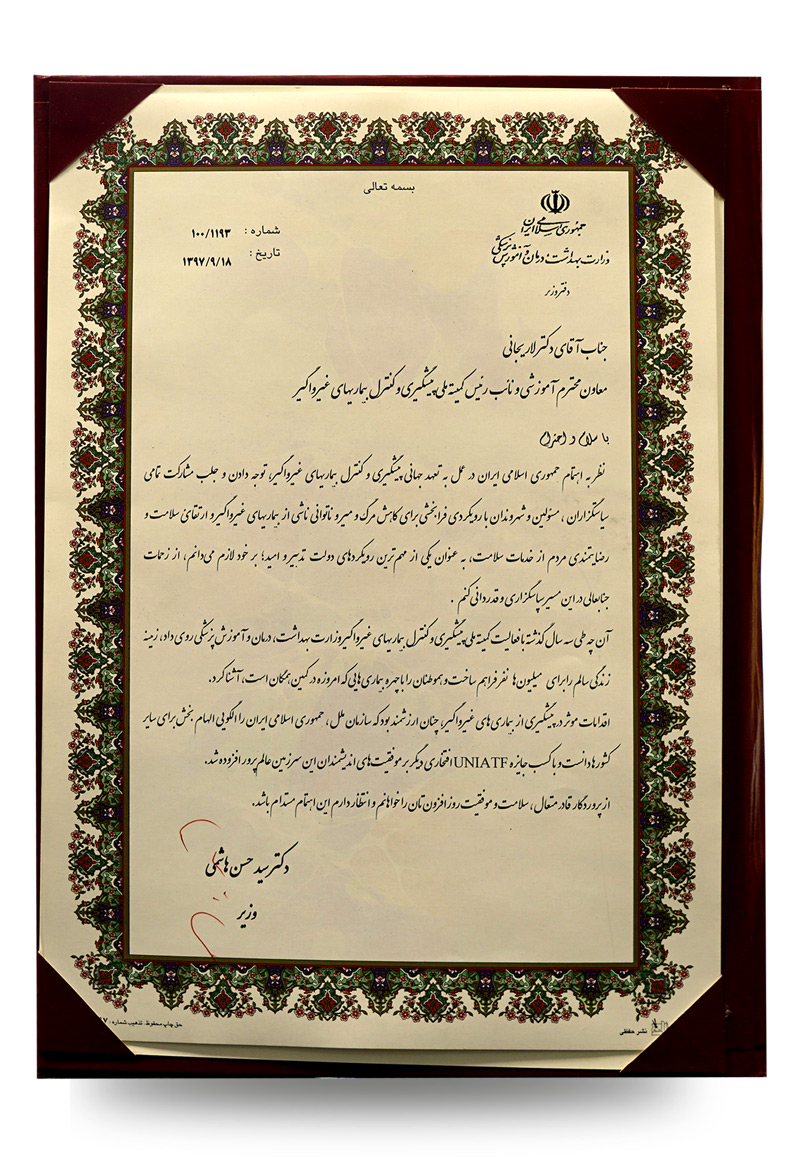 بسمه تعالی
جمهوری اسلامی ایران
وزارت بهداشت، درمان و آموزش پزشکی
دفتر وزیر
شماره : ۱۰۰/۱۱۹۳
تاریخ : ۱۳۹۷/۹/۱۸
جناب آقای دکتر لاریجانی
معاون محترم آموزشی و نائب رئیس کمیته ملی پیشگیری و کنترل بیماریهای غیرواگیر
با سلام و احترام
نظر به اهتمام جمهوری اسلامی ایران در عمل به تعهد جهانی پیشگیری و کنترل بیماریهای غیرواگیر؛ توجه دادن و جلب مشارکت تمامی
سیاستگزاران ، مسئولین و شهروندان با رویکردی فرابخشی برای کاهش مرگ و میر و ناتوانی ناشی از بیماریهای غیرواگیر و ارتقای سلامت و
رضایتمندی مردم از خدمات سلامت، به عنوان یکی از مهم ترین رویکردهای دولت تدبیر و امید؛ بر خود لازم می‌دانم ، از زحمات
جنابعالی در این مسیر سپاسگزاری و قدردانی کنم .
آن چه طی سه سال گذشته با فعالیت کمیته ملی پیشگیری و کنترل بیماریهای غیرواگیر وزارت بهداشت، درمان و آموزش پزشکی روی داد، زمینه
زندگی سالم را برای میلیون‌ها نفر فراهم ساخت و هموطنان را با چهره بیماری هایی که امروزه در کمین همگان است، آشنا کرد.
اقدامات موثر در پیشگیری از بیماری های غیرواگیر، چنان ارزشمند بود که سازمان ملل ، جمهوری اسلامی ایران را الگویی الهام بخش برای سایر
کشورها دانست و با کسب جایزه UNIATF افتخاری دیگر بر موفقیت های اندیشمندان این سرزمین عالم پرور افزوده شد.
از پروردگار قادر متعال ، سلامت و موفقیت روزافزون تان را خواهانم و انتظار دارم این اهتمام مستدام باشد.
دکتر سید حسن هاشمی
وزیر
نشر حفظی
حق چاپ محفوظ. تذهیب شماره :